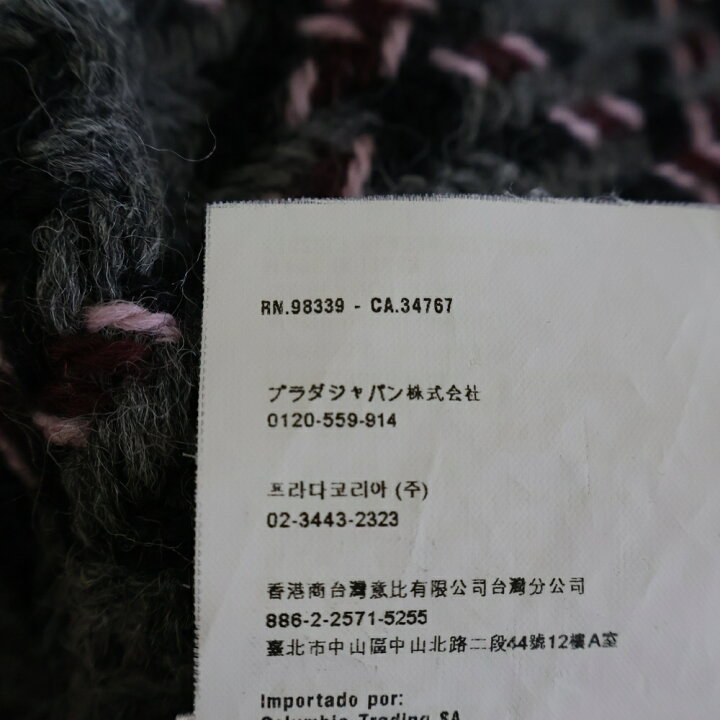 RN.98339 - CA.34767
プラダジャパン株式会社
0120-559-914
프라다코리아 (주)
02-3443-2323
香港商台灣意比有限公司台灣分公司
886-2-2571-5255
臺北市中山區中山北路二段44號12樓A室
Importado por:
Columbia Trading SA